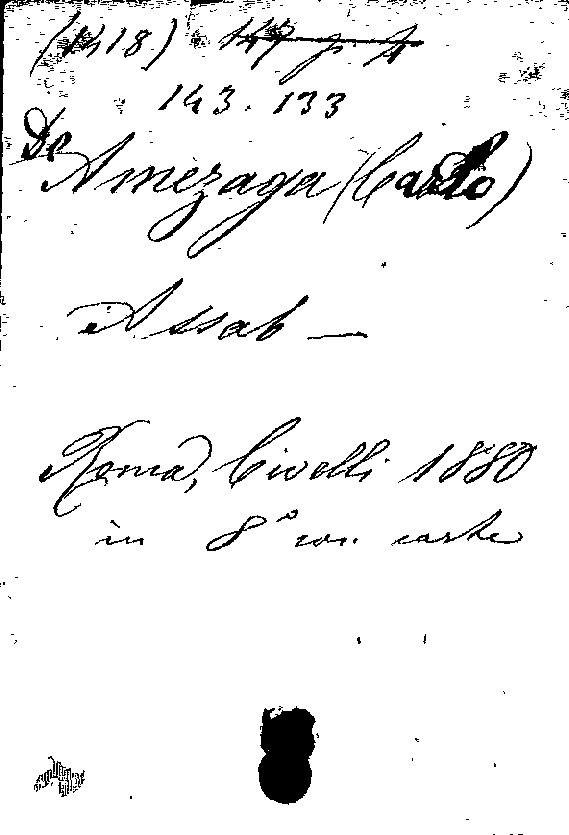 (1418)
143. 133
De Amezaga (Carlo)
Assab —
Roma, Civelli 1880
in 8° con carte